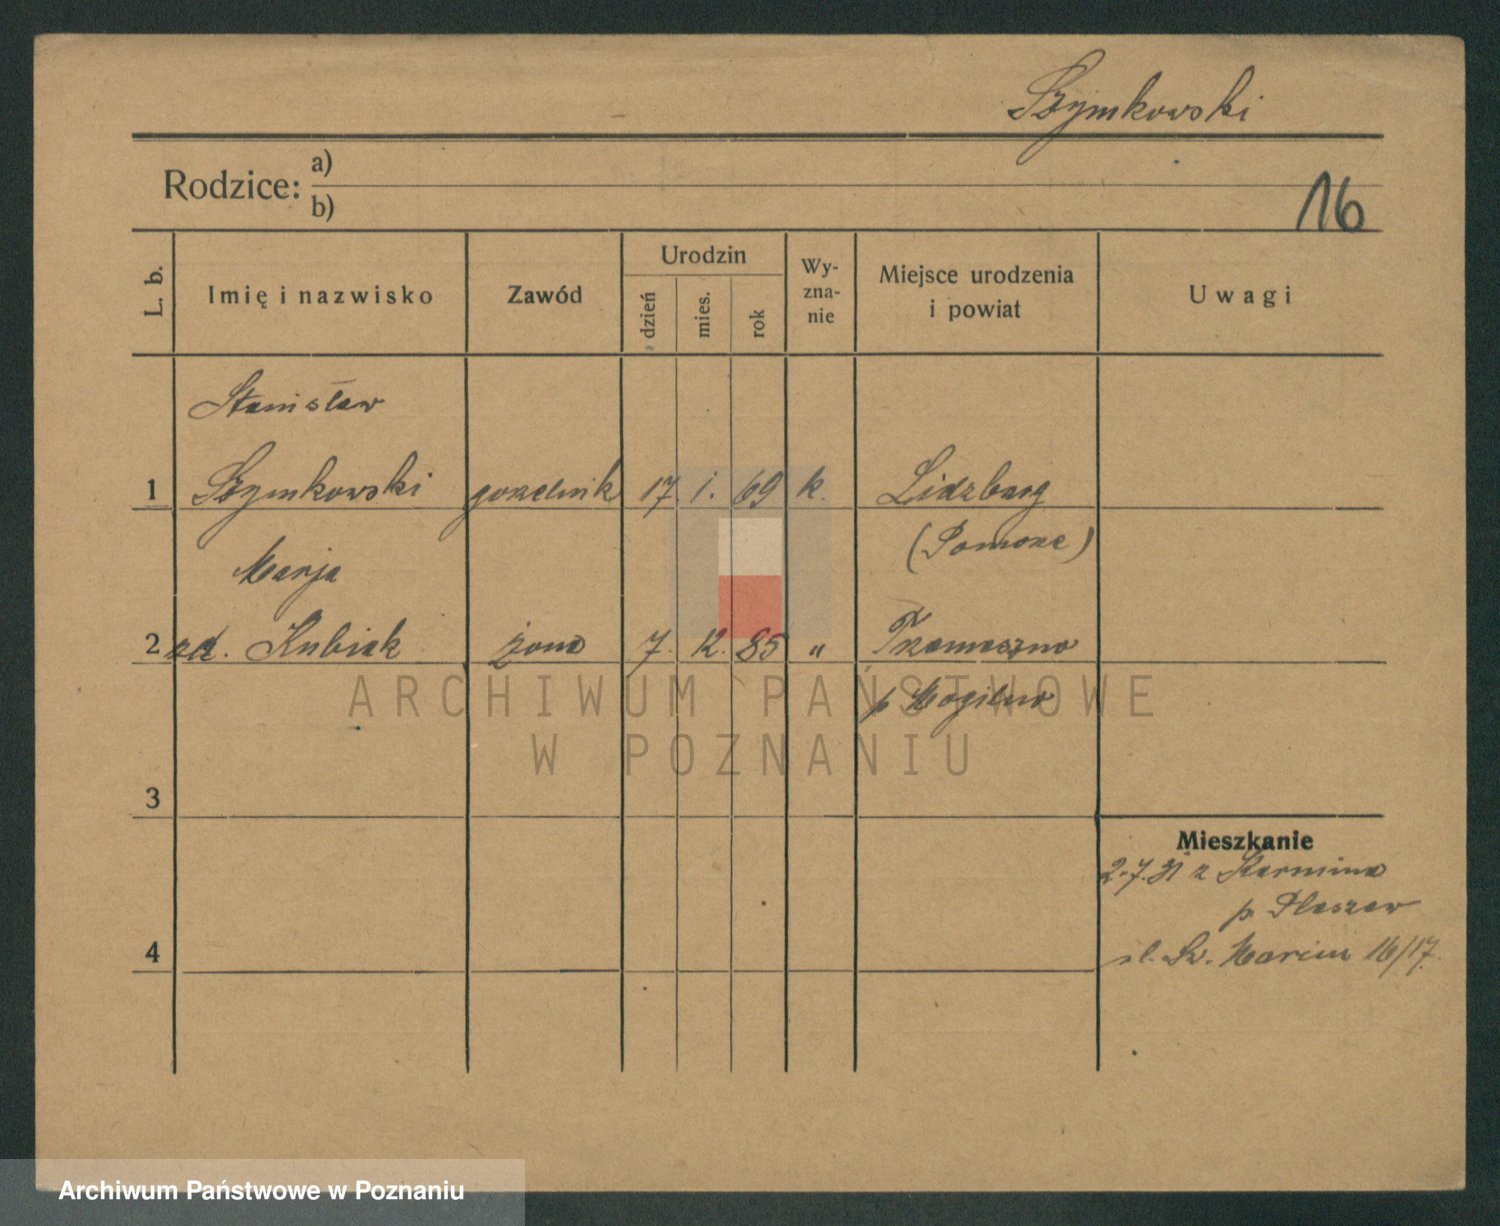 Szymkowski
Rodzice: a)
b)
16
L. b.
Imię i nazwisko
Zawód
Urodzin
dzień
mies.
rok
Wy-
zna-
nie
Miejsce urodzenia
i powiat
Uwagi
Stanisław
1 Szymkowski gorzelnik 17. 1. 69 k. Lidzbarg
(Pomorze)
Marja
2 zd. Kubiak żona 7. 12. 85 „ Trzemeszno
p. Mogilno
ARCHIWUM PAŃSTWOWE
W POZNANIU
3
Mieszkanie
2.7.31 z Karmina
p. Pleszew
4
ul. Św. Marcin 16/17.
Archiwum Państwowe w Poznaniu